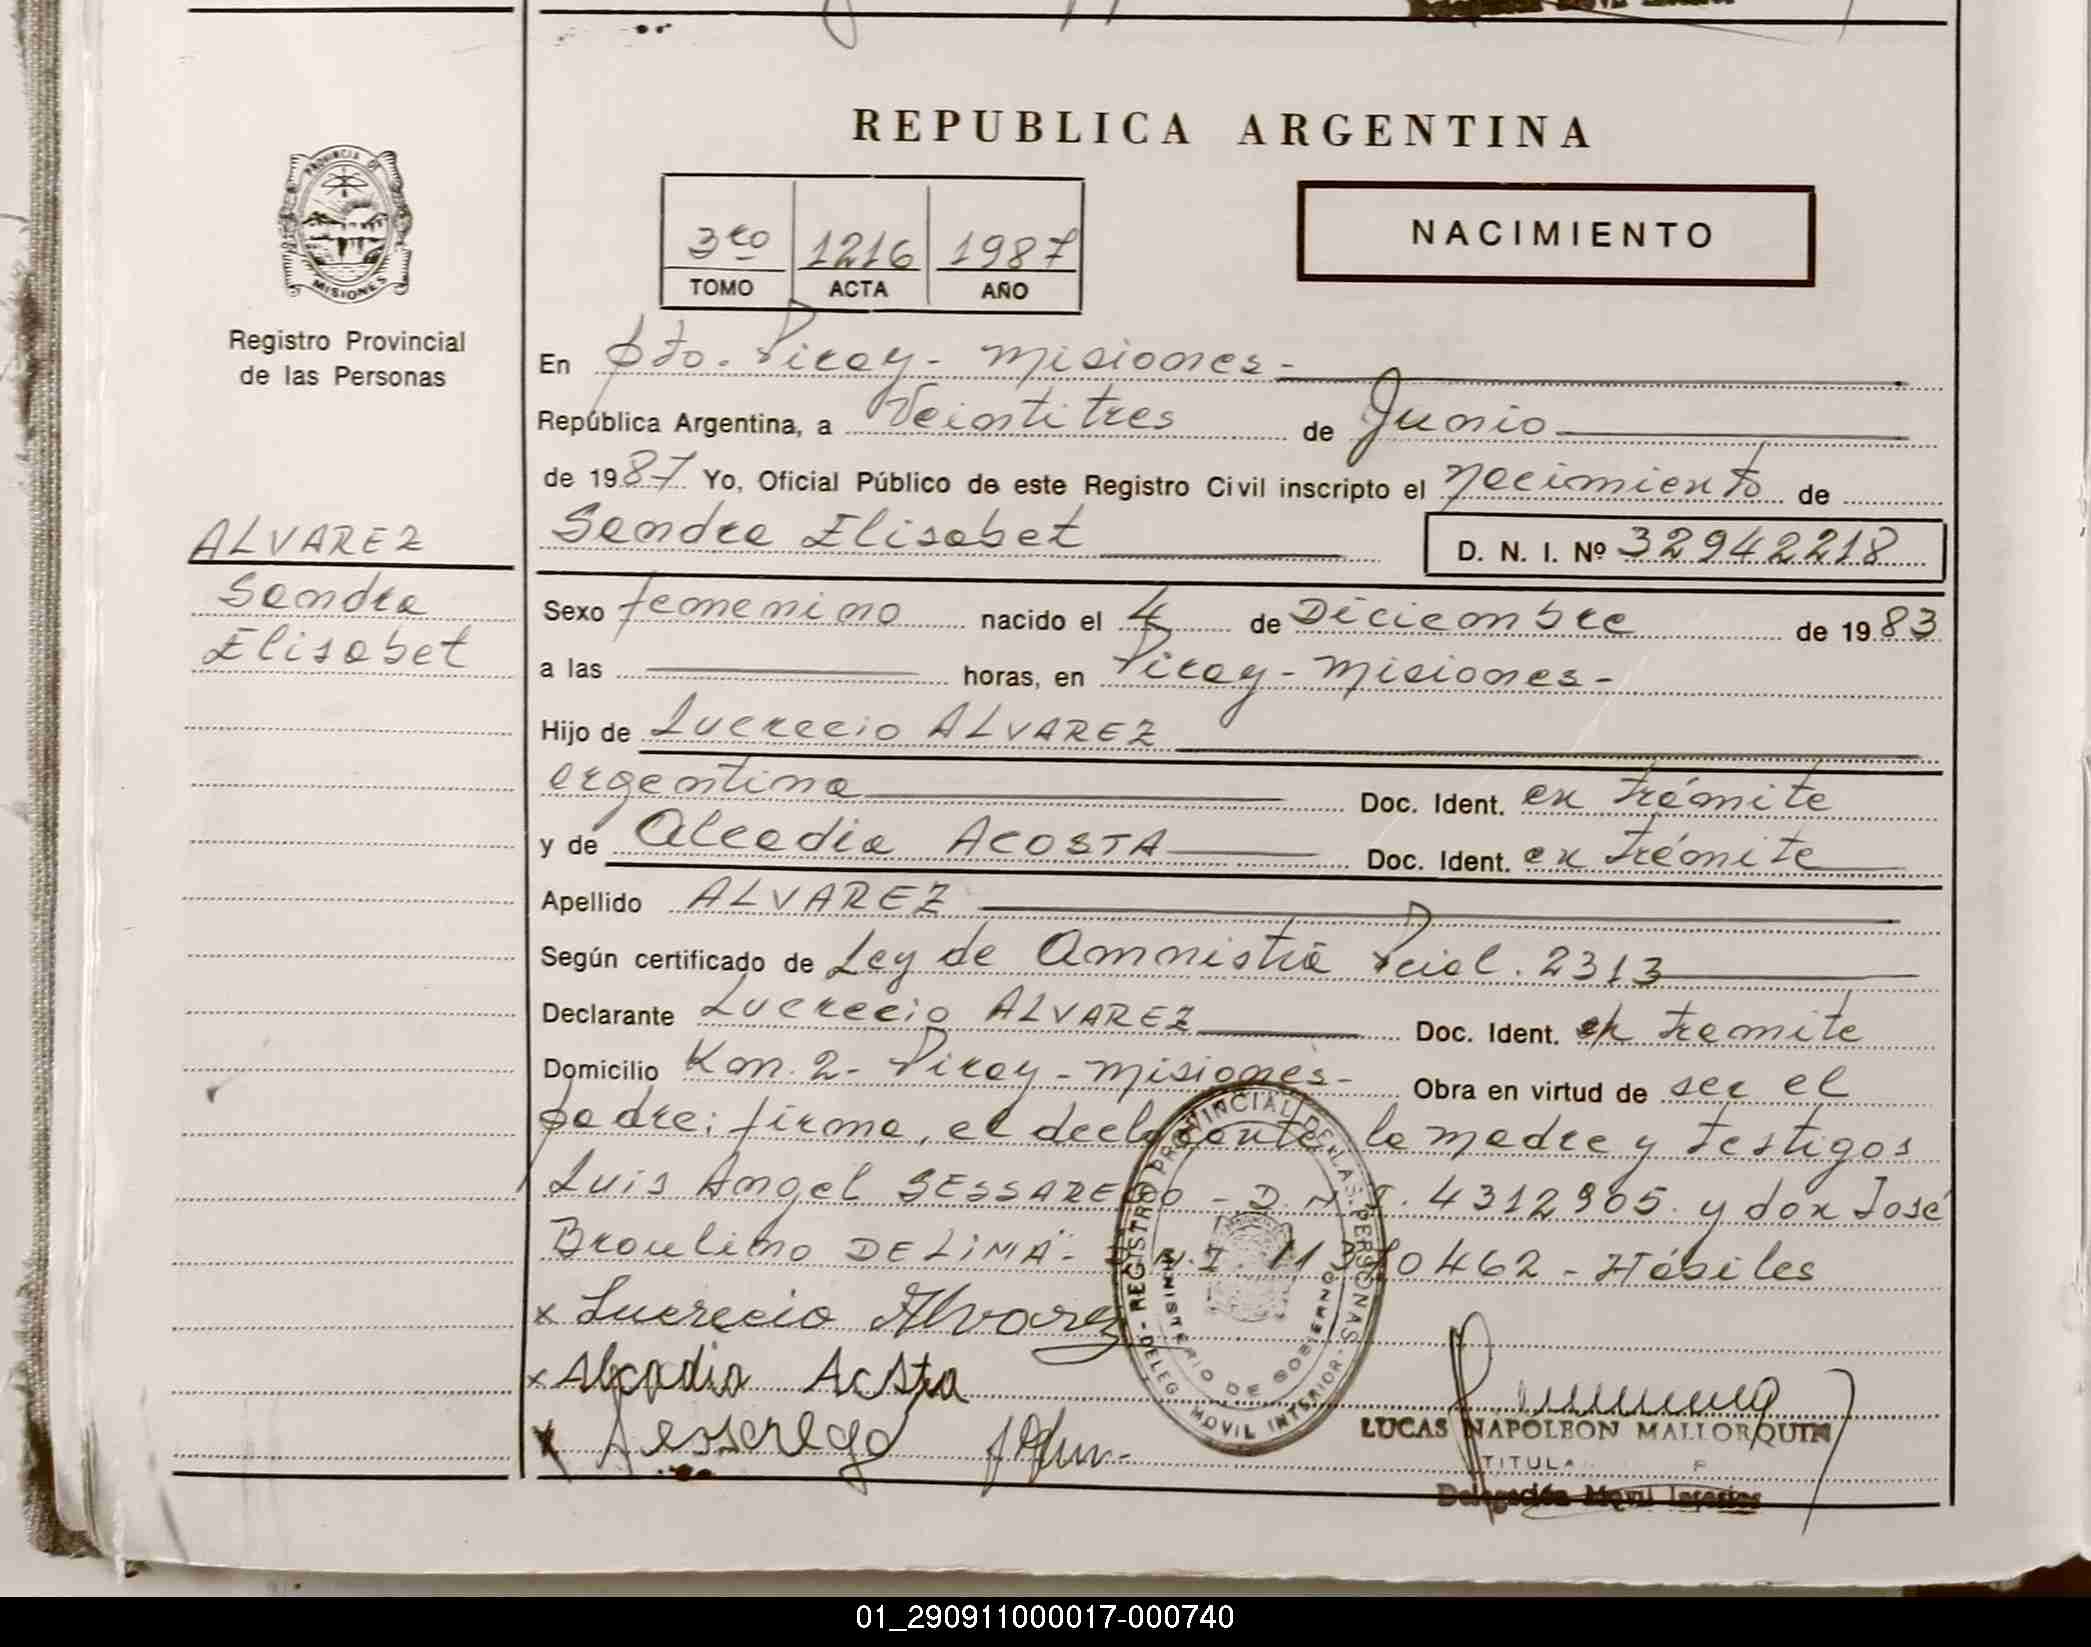 REPUBLICA ARGENTINA
PROVINCIA DE
MISIONES
Registro Provincial
de las Personas
3ro 1216 1987
TOMO ACTA AÑO
NACIMIENTO
En Pto. Piray - Misiones -
República Argentina, a Veintitres de Junio
de 1987 Yo, Oficial Público de este Registro Civil inscripto el Nacimiento de
Sandra Elisabet D. N. I. Nº 32942218
ALVAREZ
Sandra
Elisabet
Sexo femenino nacido el 4 de Diciembre de 1983
a las horas, en Piray - Misiones -
Hijo de Lucrecio ALVAREZ
argentina Doc. Ident. en trámite
y de Alcadia ACOSTA Doc. Ident. en trámite
Apellido ALVAREZ
Según certificado de Ley de Amnistia Pcial. 2313
Declarante Lucrecio ALVAREZ Doc. Ident. en tramite
Domicilio Km. 2 - Piray - Misiones - Obra en virtud de ser el
padre; firma, el declarante, la madre y testigos
Luis Angel SESSAREGO - D.N.I. 4312905. y don José
Braulino DE LIMA - D.N.I. 11370462 - Hábiles
x Lucrecio Alvarez
x Alcadia Acsta
x Sessarego
REGISTRO PROVINCIAL DE LAS PERSONAS - DELEG MOVIL INTERIOR -
MINISTERIO DE GOBIERNO
LUCAS NAPOLEON MALLORQUIN
TITULAR
Delegación Movil Interior
01_290911000017-000740